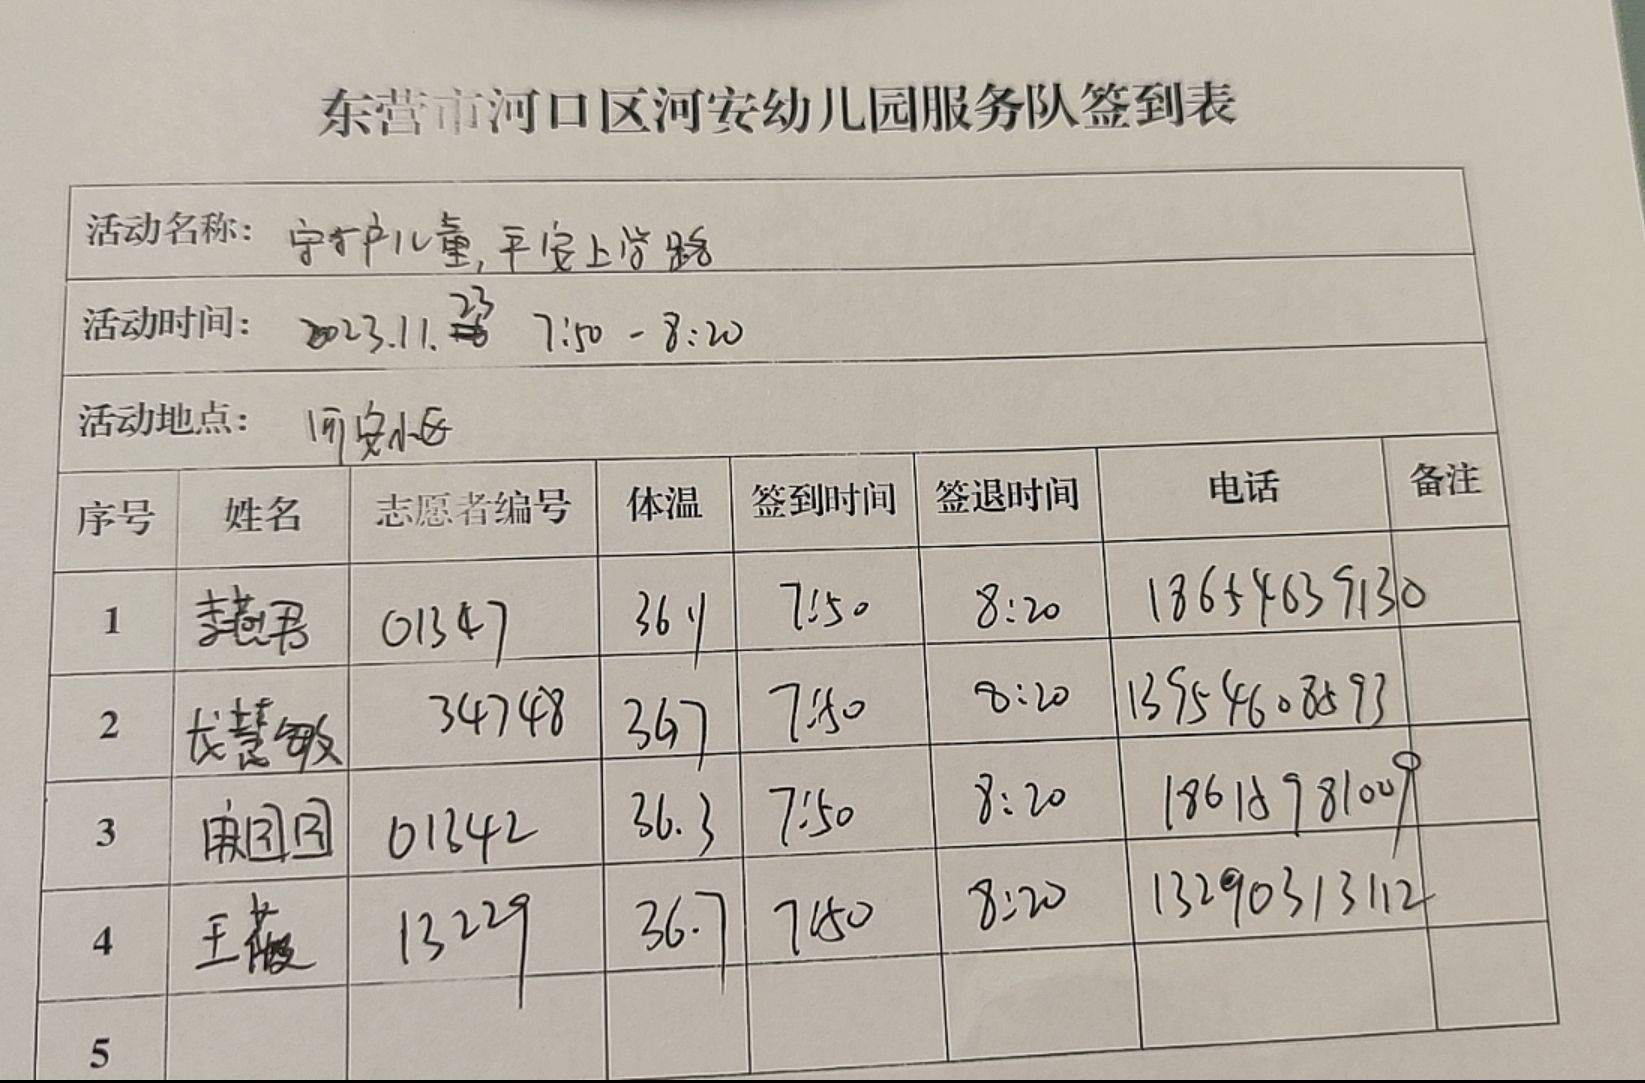 东营市河口区河安幼儿园服务队签到表
活动名称: 守护儿童,平安上学路
活动时间: 2023.11.23 7:50-8:20
活动地点: 河安小区
序号 姓名 志愿者编号 体温 签到时间 签退时间 电话 备注
1 李燕君 01347 7:50 8:20 18654639130
2 慧敏 34748 367 7:50 8:20 13954608593
3 团团 01342 36.3 7:50 8:20
4 王薇 13229 36.7 7:50 8:20 13290313112
5